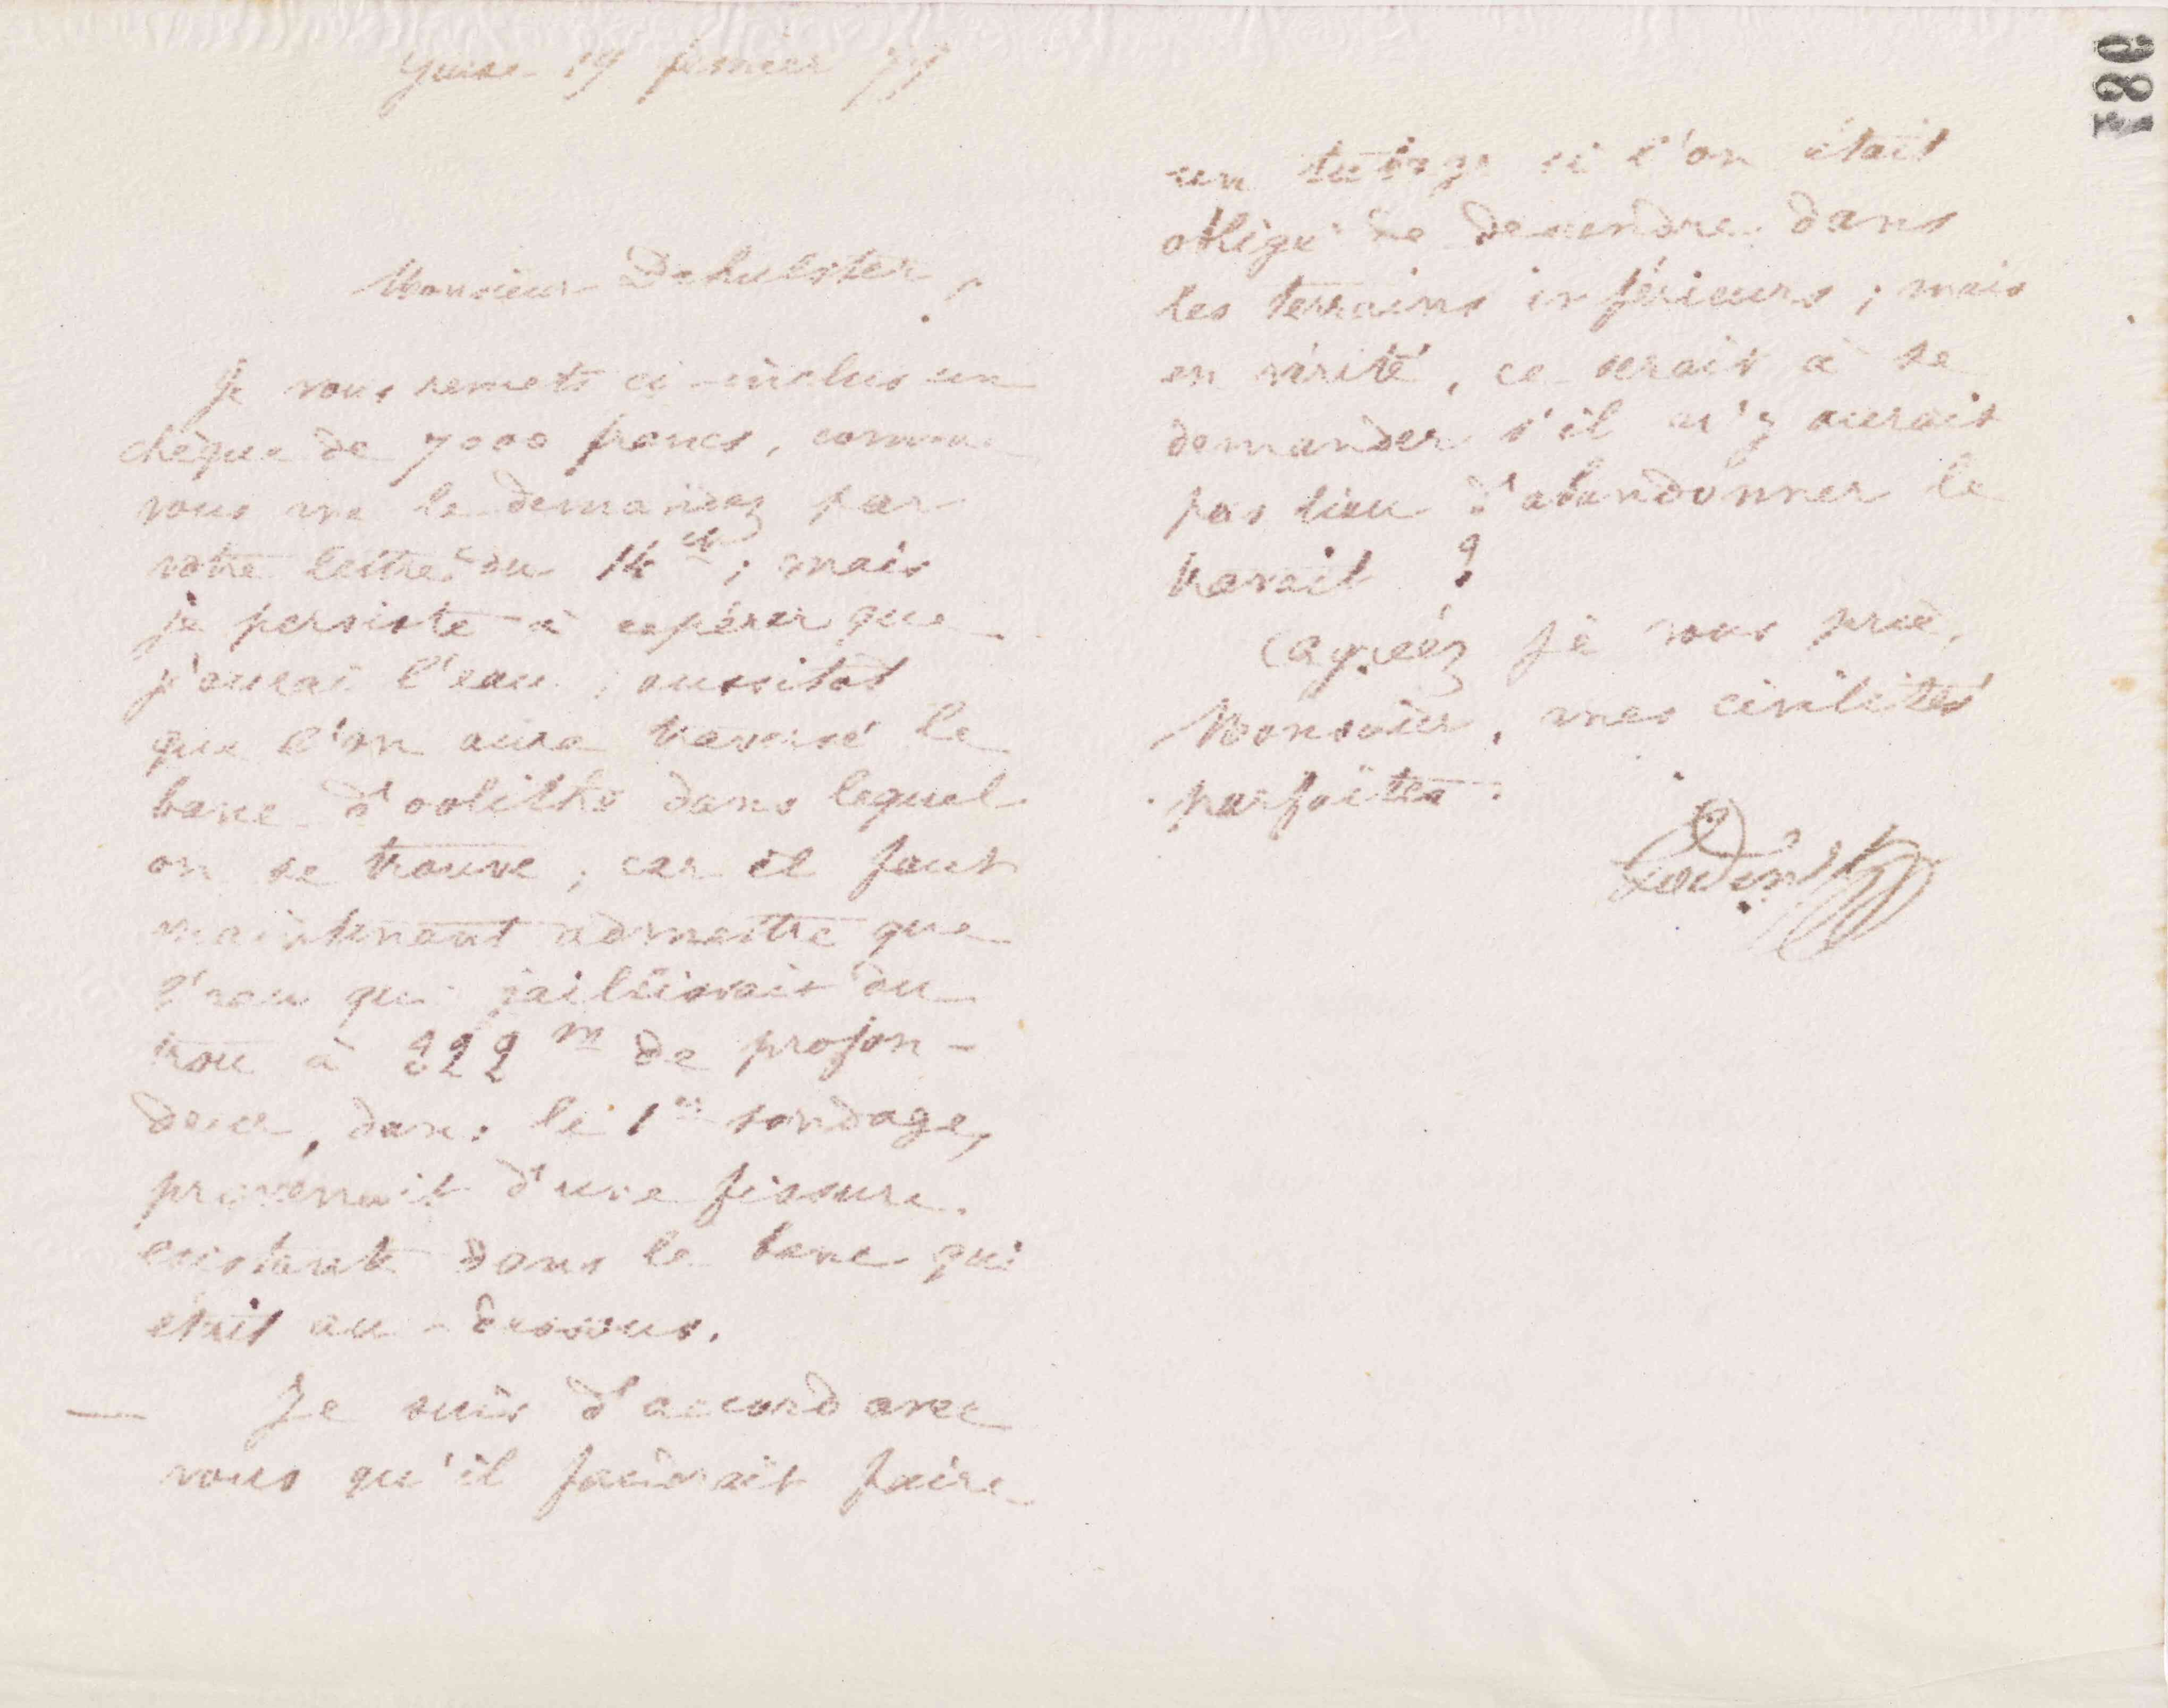 Guise 19 février 79
Monsieur Dehulster,
Je vous remets ci-inclus un
chèque de 7000 francs, comme
vous me le demandez par
votre lettre du 14 ct; mais
je persiste à espérer que
j'aurai l'eau, aussitôt
que l'on aura traversé le
banc d'oolithe dans lequel
on se trouve; car il faut
maintenant admettre que
l'eau qui jaillissait du
trou à 322 m de profon-
deur, dans le 1er sondage,
provenait d'une fissure
existant dans le banc qui
était au-dessous.
— Je suis d'accord avec
vous qu'il faudrait faire
un tubage si l'on était
obligé de descendre dans
les terrains inférieurs; mais
en vérité, ce serait à se
demander s'il n'y aurait
pas lieu d'abandonner le
travail ?
Agréez je vous prie,
Monsieur, mes civilités
parfaites.
Godin